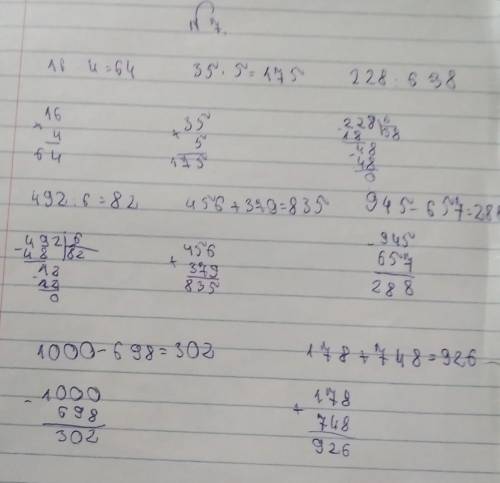 № 7.
16 4=64 35·5=175 228:6 38
16 35 228|6
× 4 × 5 -18 |38
64 175 48
-48
0
492:6=82 456+379=835 945-657=288
-492|6 456 -945
48 |82 +379 657
-12 835 288
12
0
1000-698=302 178+748=926
-1000 178
698 +748
302 926